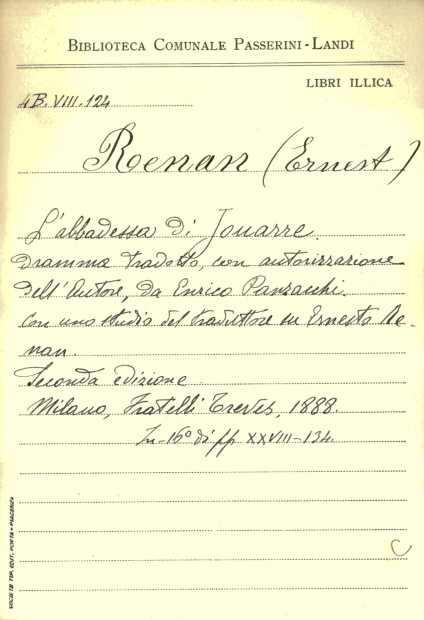 BIBLIOTECA COMUNALE PASSERINI-LANDI
LIBRI ILLICA
4B.VIII.124
Renan (Ernest)
L'abbadessa di Jouarre.
Dramma tradotto, con autorizzazione
dell'Autore, da Enrico Panzacchi.
Con uno studio del traduttore su Ernesto Re-
nan.
Seconda edizione
Milano, Fratelli Treves, 1888.
In-16º di pp XXVIII-134.
C
SOCIETÀ TIP. EDIT. PORTA - PIACENZA